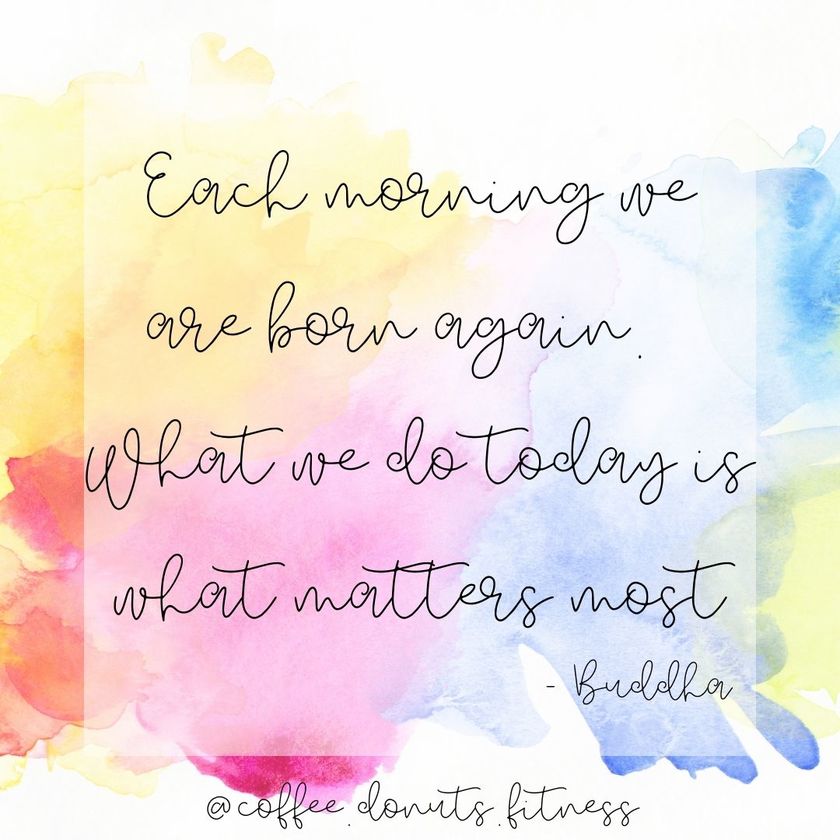 Each morning we
are born again.
What we do today is
what matters most
- Buddha
@coffee.donuts.fitness